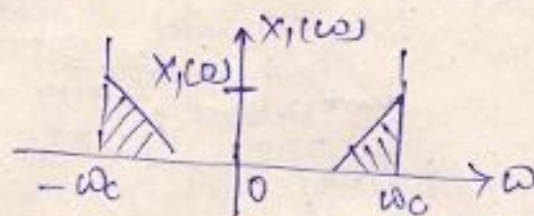 X₁(ω)
X₁(0)
-ωc 0 ωc ω